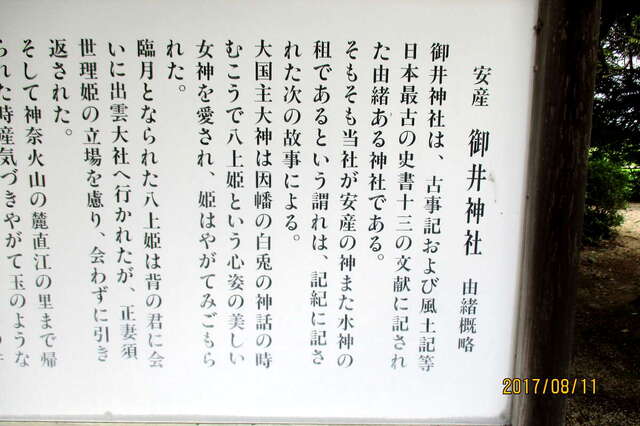 安産 御井神社 由緒概略
御井神社は、古事記および風土記等
日本最古の史書十三の文献に記され
た由緒ある神社である。
そもそも当社が安産の神また水神の
祖であるという謂れは、記紀に記さ
れた次の故事による。
大国主大神は因幡の白兎の神話の時
むこうで八上姫という心姿の美しい
女神を愛され、姫はやがてみごもら
れた。
臨月となられた八上姫は背の君に会
いに出雲大社へ行かれたが、正妻須
世理姫の立場を慮り、会わずに引き
返された。
そして神奈火山の麓直江の里まで帰
られた時産気づきやがて玉のような
2017/08/11